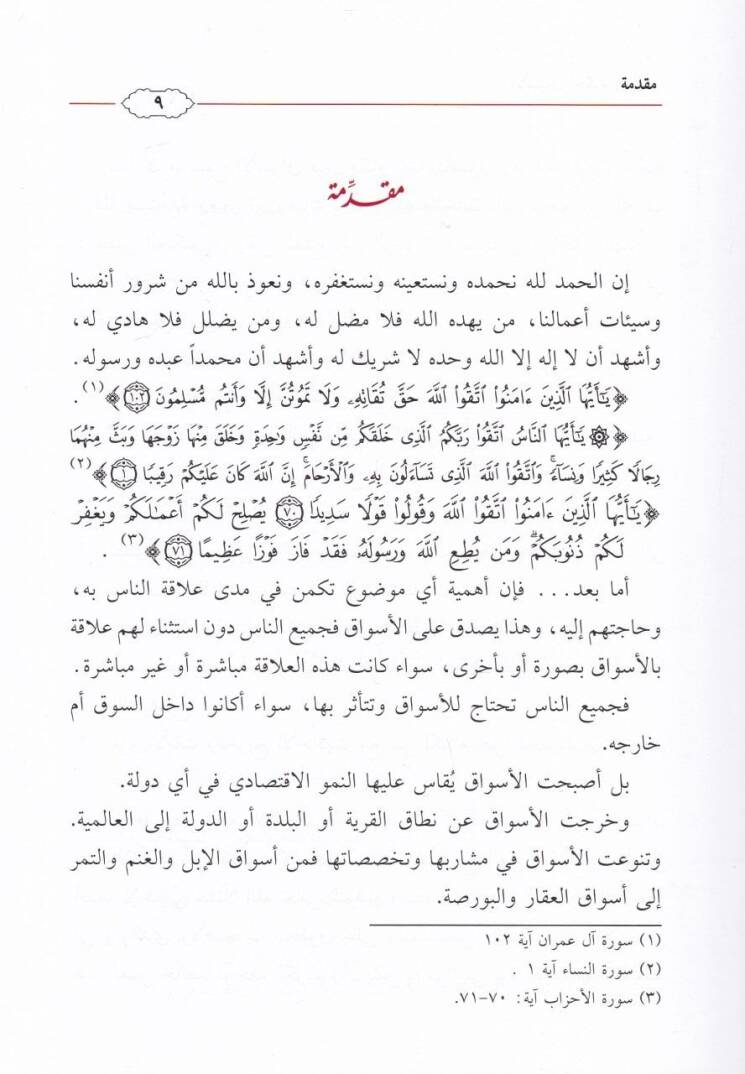 مقدمة
٩
مقدِّمة
إن الحمد لله نحمده ونستعينه ونستغفره، ونعوذ بالله من شرور أنفسنا
وسيئات أعمالنا، من يهده الله فلا مضل له، ومن يضلل فلا هادي له،
وأشهد أن لا إله إلا الله وحده لا شريك له وأشهد أن محمداً عبده ورسوله.
﴿يَٰٓأَيُّهَا ٱلَّذِينَ ءَامَنُوا۟ ٱتَّقُوا۟ ٱللَّهَ حَقَّ تُقَاتِهِۦ وَلَا تَمُوتُنَّ إِلَّا وَأَنتُم مُّسْلِمُونَ ١٠٢﴾(١).
﴿۞ يَٰٓأَيُّهَا ٱلنَّاسُ ٱتَّقُوا۟ رَبَّكُمُ ٱلَّذِى خَلَقَكُم مِّن نَّفْسٍ وَٰحِدَةٍ وَخَلَقَ مِنْهَا زَوْجَهَا وَبَثَّ مِنْهُمَا
رِجَالًا كَثِيرًا وَنِسَآءً ۚ وَٱتَّقُوا۟ ٱللَّهَ ٱلَّذِى تَسَآءَلُونَ بِهِۦ وَٱلْأَرْحَامَ ۚ إِنَّ ٱللَّهَ كَانَ عَلَيْكُمْ رَقِيبًا ١﴾(٢)
﴿يَٰٓأَيُّهَا ٱلَّذِينَ ءَامَنُوا۟ ٱتَّقُوا۟ ٱللَّهَ وَقُولُوا۟ قَوْلًا سَدِيدًا ٧٠ يُصْلِحْ لَكُمْ أَعْمَٰلَكُمْ وَيَغْفِرْ
لَكُمْ ذُنُوبَكُمْ ۗ وَمَن يُطِعِ ٱللَّهَ وَرَسُولَهُۥ فَقَدْ فَازَ فَوْزًا عَظِيمًا ٧١﴾(٣).
أما بعد... فإن أهمية أي موضوع تكمن في مدى علاقة الناس به،
وحاجتهم إليه، وهذا يصدق على الأسواق فجميع الناس دون استثناء لهم علاقة
بالأسواق بصورة أو بأخرى، سواء كانت هذه العلاقة مباشرة أو غير مباشرة.
فجميع الناس تحتاج للأسواق وتتأثر بها، سواء أكانوا داخل السوق أم
خارجه.
بل أصبحت الأسواق يُقاس عليها النمو الاقتصادي في أي دولة.
وخرجت الأسواق عن نطاق القرية أو البلدة أو الدولة إلى العالمية.
وتنوعت الأسواق في مشاربها وتخصصاتها فمن أسواق الإبل والغنم والتمر
إلى أسواق العقار والبورصة.
(١) سورة آل عمران آية ١٠٢
(٢) سورة النساء آية ١ .
(٣) سورة الأحزاب آية: ٧٠-٧١.